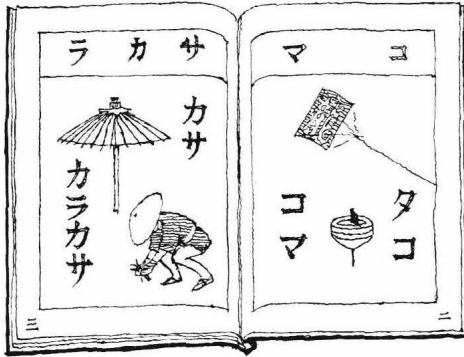 コ マ
タコ
コマ
二
サ カ ラ
カサ
カラカサ
三